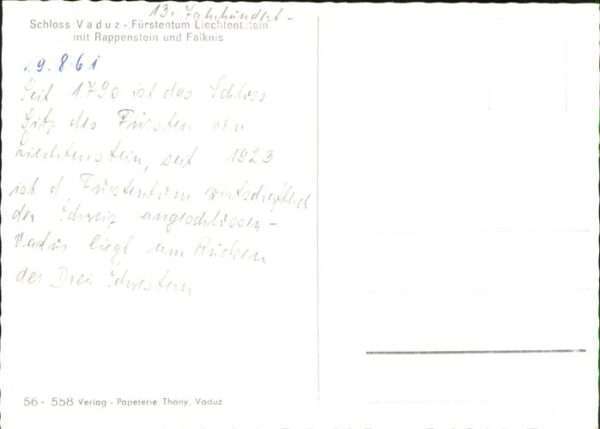 13. Jahrhundert -
Schloss Vaduz - Fürstentum Liechtenstein
mit Rappenstein und Falknis
.9.8.61
Seit 1790 ist das Schloss
Sitz des Fürsten von
Liechtenstein, seit 1923
ist d. Fürstentum wirtschaftlich
der Schweiz angeschlossen -
Vaduz liegt am Rücken
der Drei Schwestern
56 - 558 Verlag - Papeterie Thöny, Vaduz